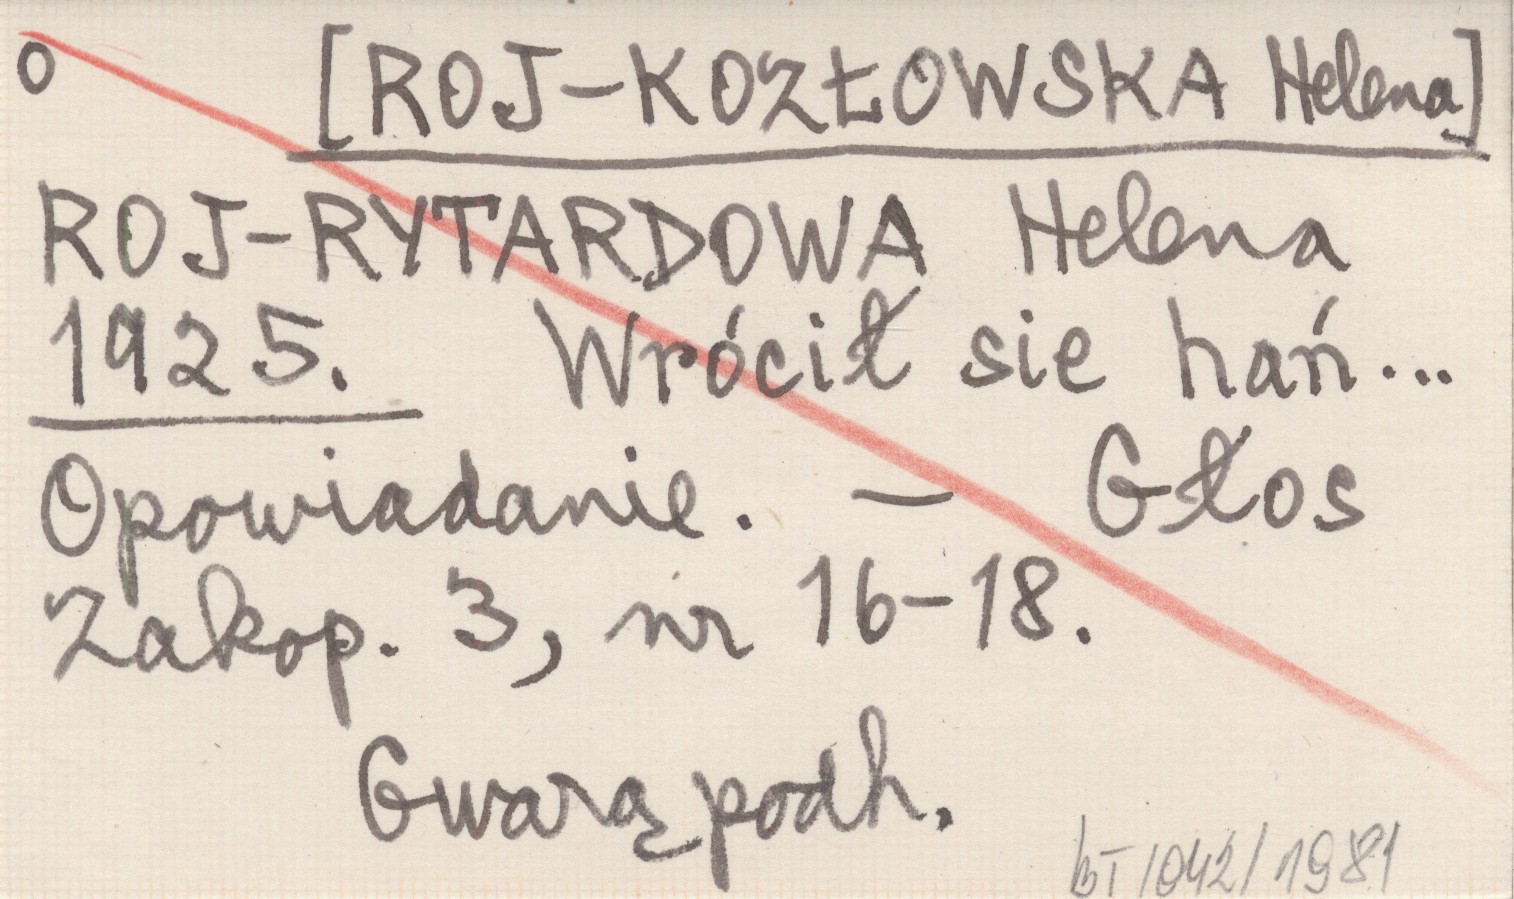 o [ROJ-KOZŁOWSKA Helena]
ROJ-RYTARDOWA Helena
1925. Wrócił sie hań...
Opowiadanie. — Głos
Zakop. 3, nr 16-18.
Gwarą podh.
BT/042/1981